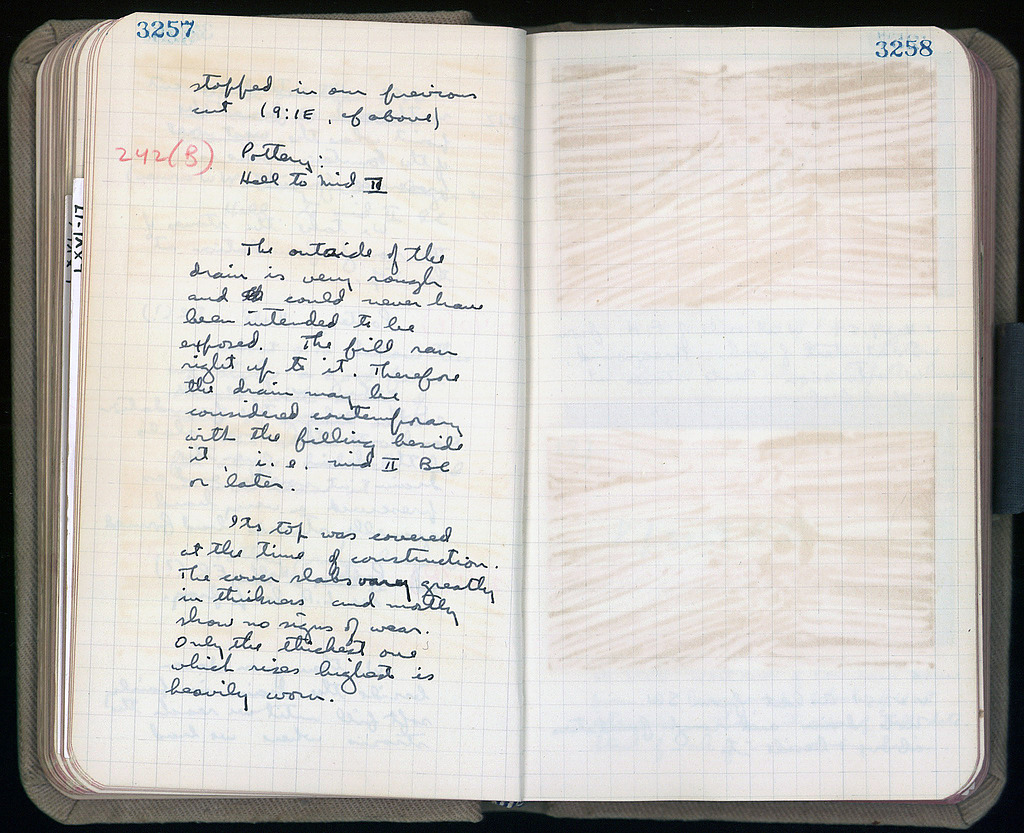 3257
stopped in our previous
cut (9:1E, cf above)
242(B) Pottery:
Hell to mid II
The outside of the
drain is very rough
and could never have
been intended to be
exposed. The fill ran
right up to it. Therefore
the drain may be
considered contemporary
with the filling beside
it, i.e. mid II BC
or later.
Its top was covered
at the time of construction.
The cover slabs vary greatly
in thickness and mostly
show no signs of wear.
Only the thickest one
which rises highest is
heavily worn.
LXVI-17
3258